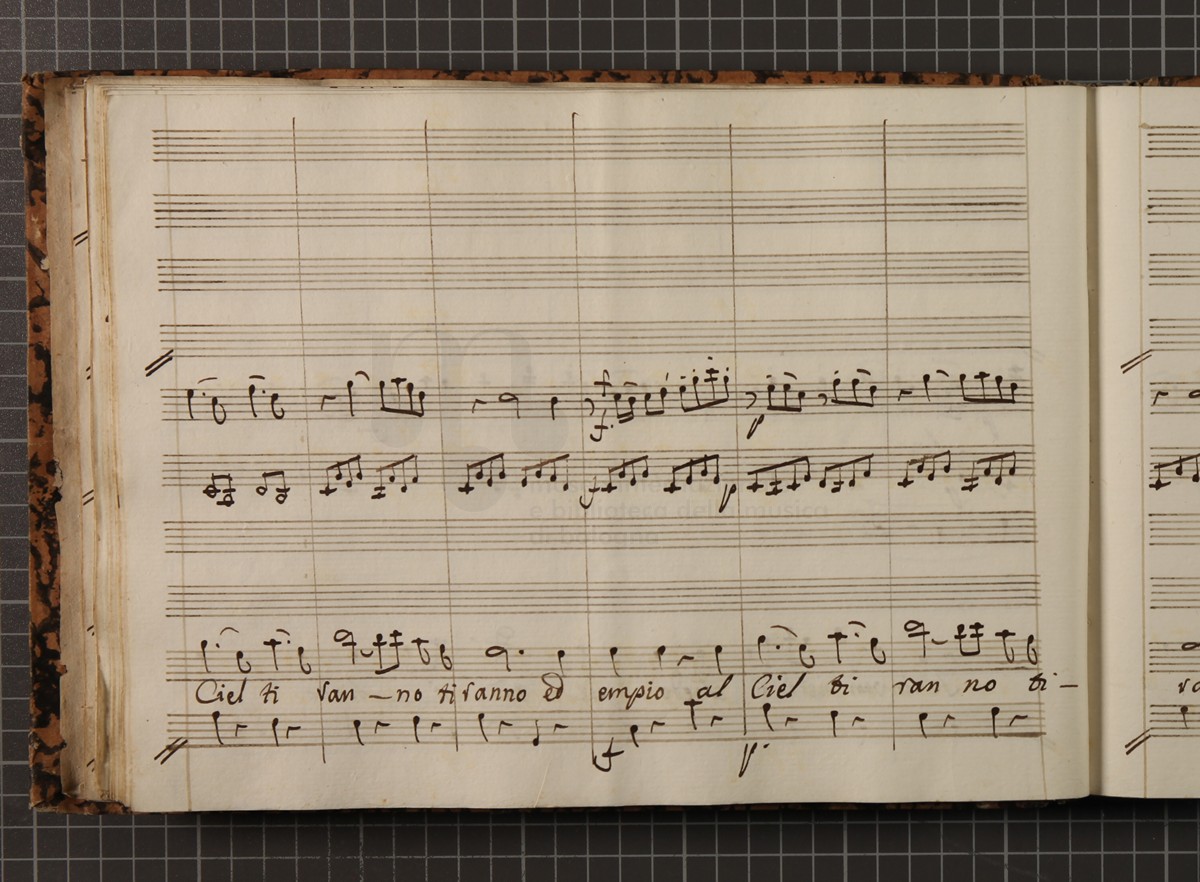 f.
p
f
p
Ciel ti ran – no ti ranno ed empio al Ciel ti ran no ti –
f
p.
e biblioteca della musica
di bologna